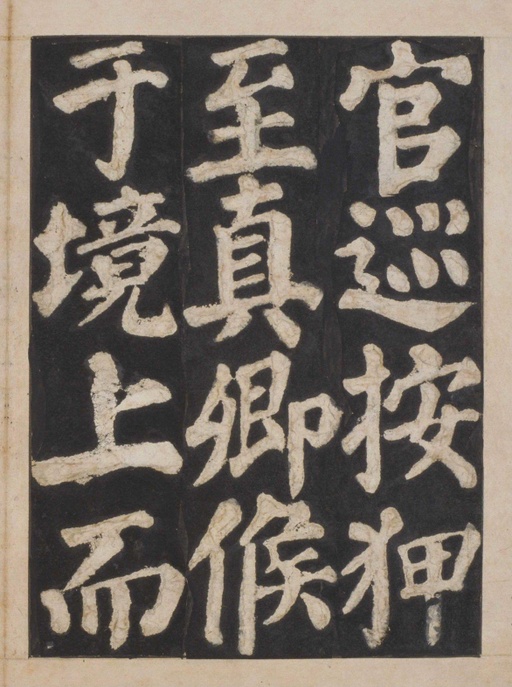 官巡按狎
至真卿候
于境上而